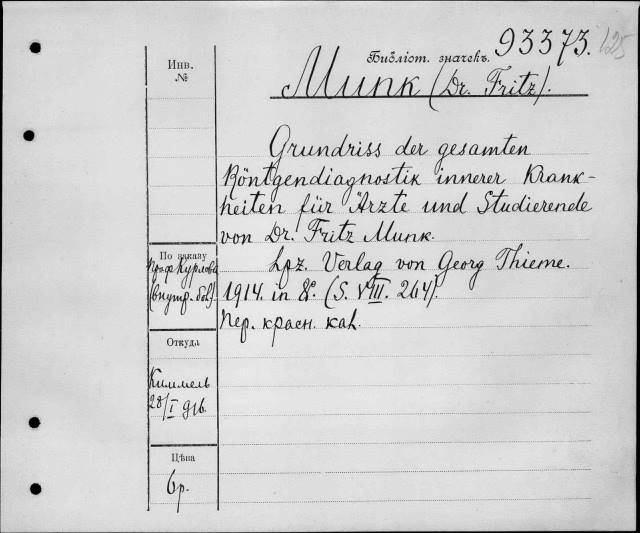 Библіот. значекъ. 93373. 125
Munk (Dr. Fritz).
Инв.
№
Grundriss der gesamten
Röntgendiagnostik innerer Krank-
heiten für Ärzte und Studierende
von Dr. Fritz Munk.
Lpz. Verlag von Georg Thieme.
1914. in 8º. (S. VIII. 264).
Пер. красн. кал.
По заказу
Проф Курлова
(внутр. бол).
Откуда
Киммель
28/I 916.
Цѣна
6р.